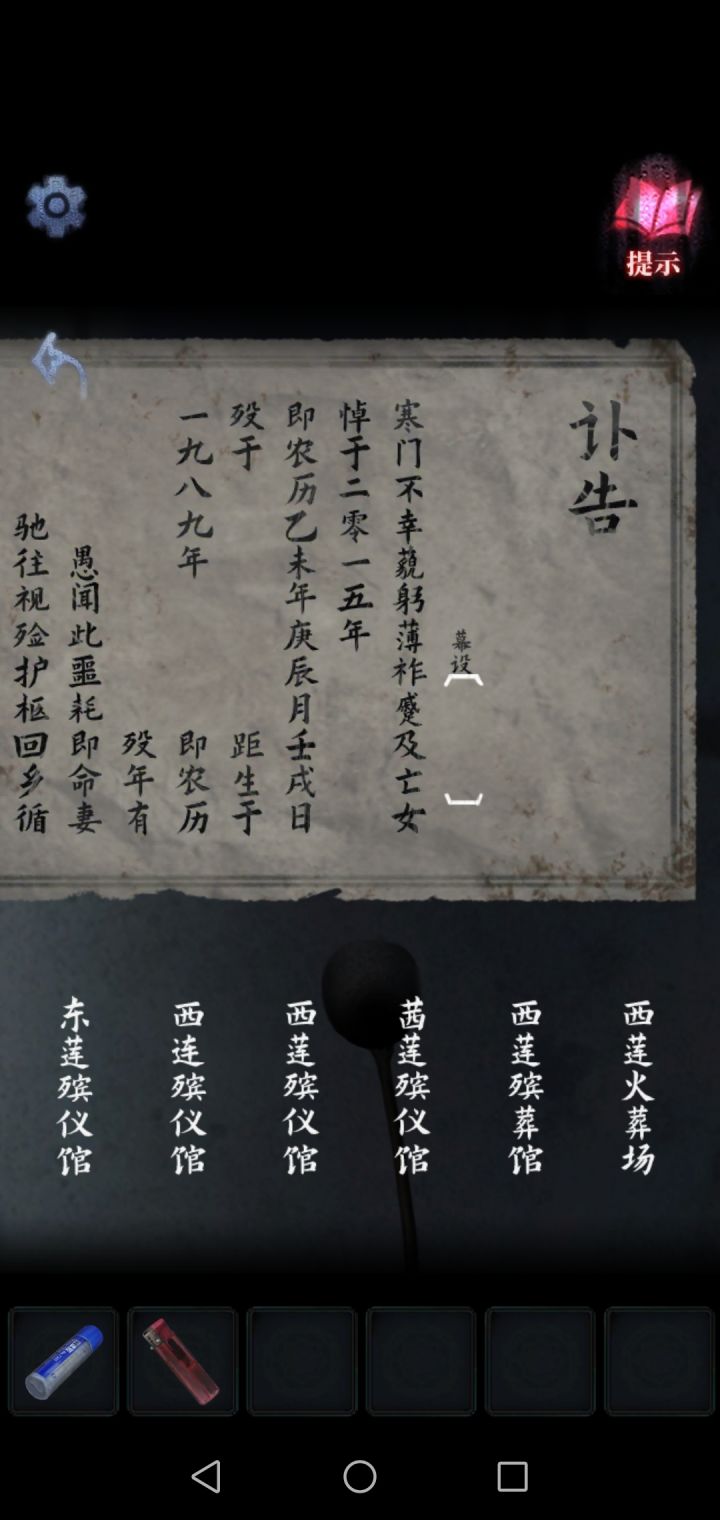 提示
讣告
幕设
寒门不幸藐躬薄祚蹙及亡女
悼于二零一五年
即农历乙未年庚辰月壬戌日
殁于 距生于
一九八九年 即农历
殁年有
愚闻此噩耗即命妻
驰往视殓护柩回乡循
西莲火葬场
西莲殡葬馆
茜莲殡仪馆
西莲殡仪馆
西连殡仪馆
东莲殡仪馆